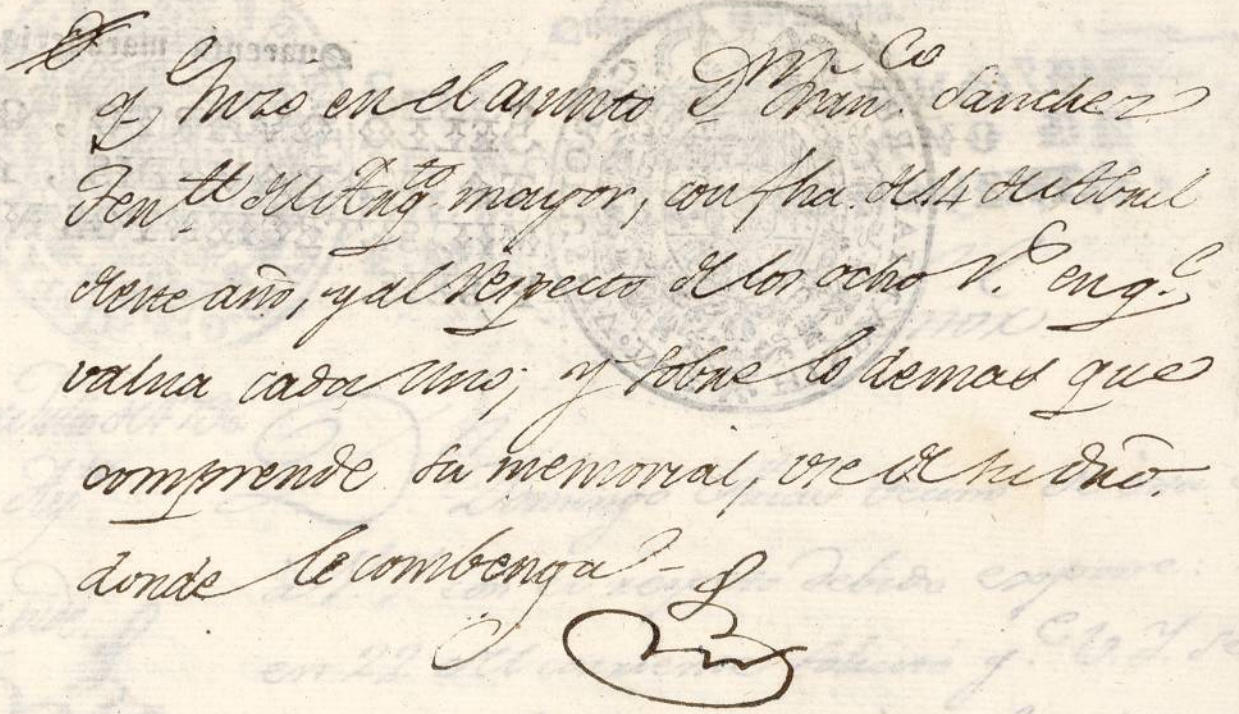 q.e hizo en el asunto D.n Fran.co Sanchez
Ten.te del Arq.to mayor, con fha. de 14 de Abril
deste año, y al respecto de los ocho r.s en q.e
valua cada uno; y sobre lo demas que
comprende su memorial, use de su dro.
donde le combenga